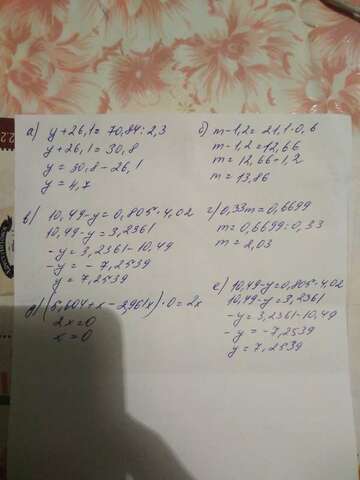 а) y+26,1=70,84:2,3
y+26,1=30,8
y=30,8-26,1
y=4,7
б) m-1,2=21,1·0,6
m-1,2=12,66
m=12,66+1,2
m=13,86
в) 10,49-y=0,805·4,02
10,49-y=3,2361
-y=3,2361-10,49
-y=-7,2539
y=7,2539
г) 0,33m=0,6699
m=0,6699:0,33
m=2,03
д) (5,604+x-2,961x)·0=2x
2x=0
x=0
е) 10,49-y=0,805·4,02
10,49-y=3,2361
-y=3,2361-10,49
-y=-7,2539
y=7,2539